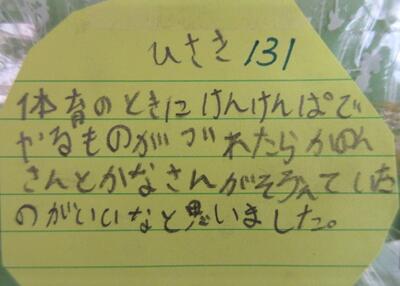 ひさき 131
体育のときにけんけんぱで
やるものがづれたらかのん
さんとかなさんがそろえていた
のがいいなと思いました。